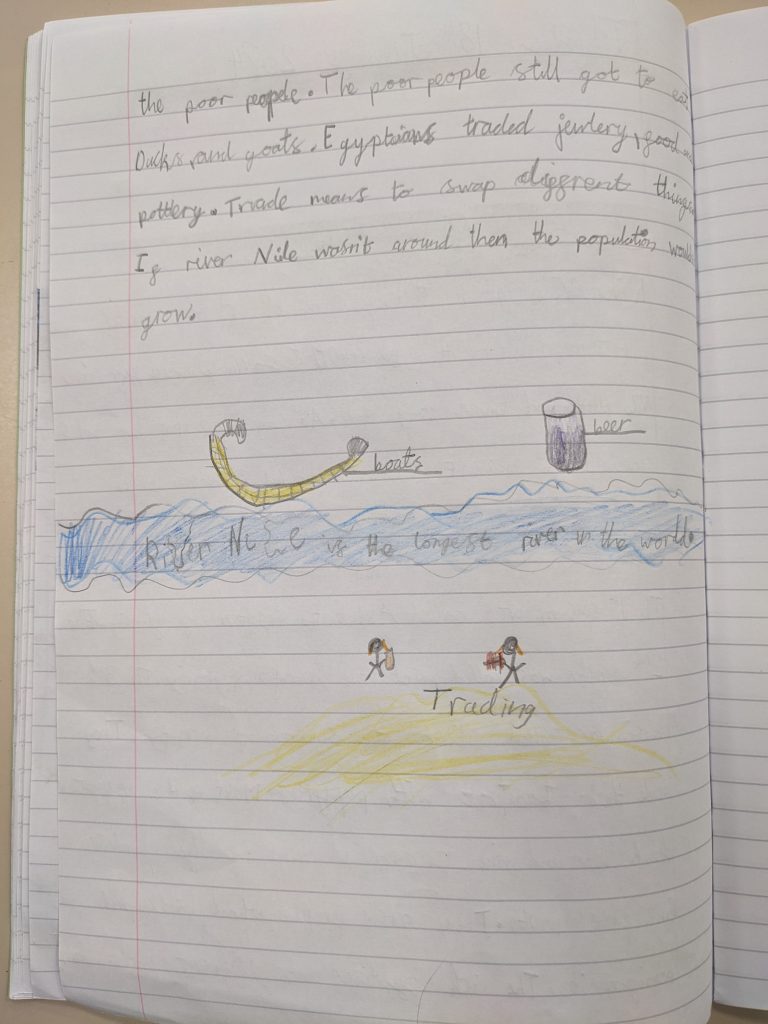 the poor people. The poor people still got to eat
Ducks, and goats. Egyptians traded jewlery, good
pottery. Trade means to swap diffrent things
If river Nile wasn't around then the population would
grow.
beer
boats
River Nile is the longest river in the world.
Trading